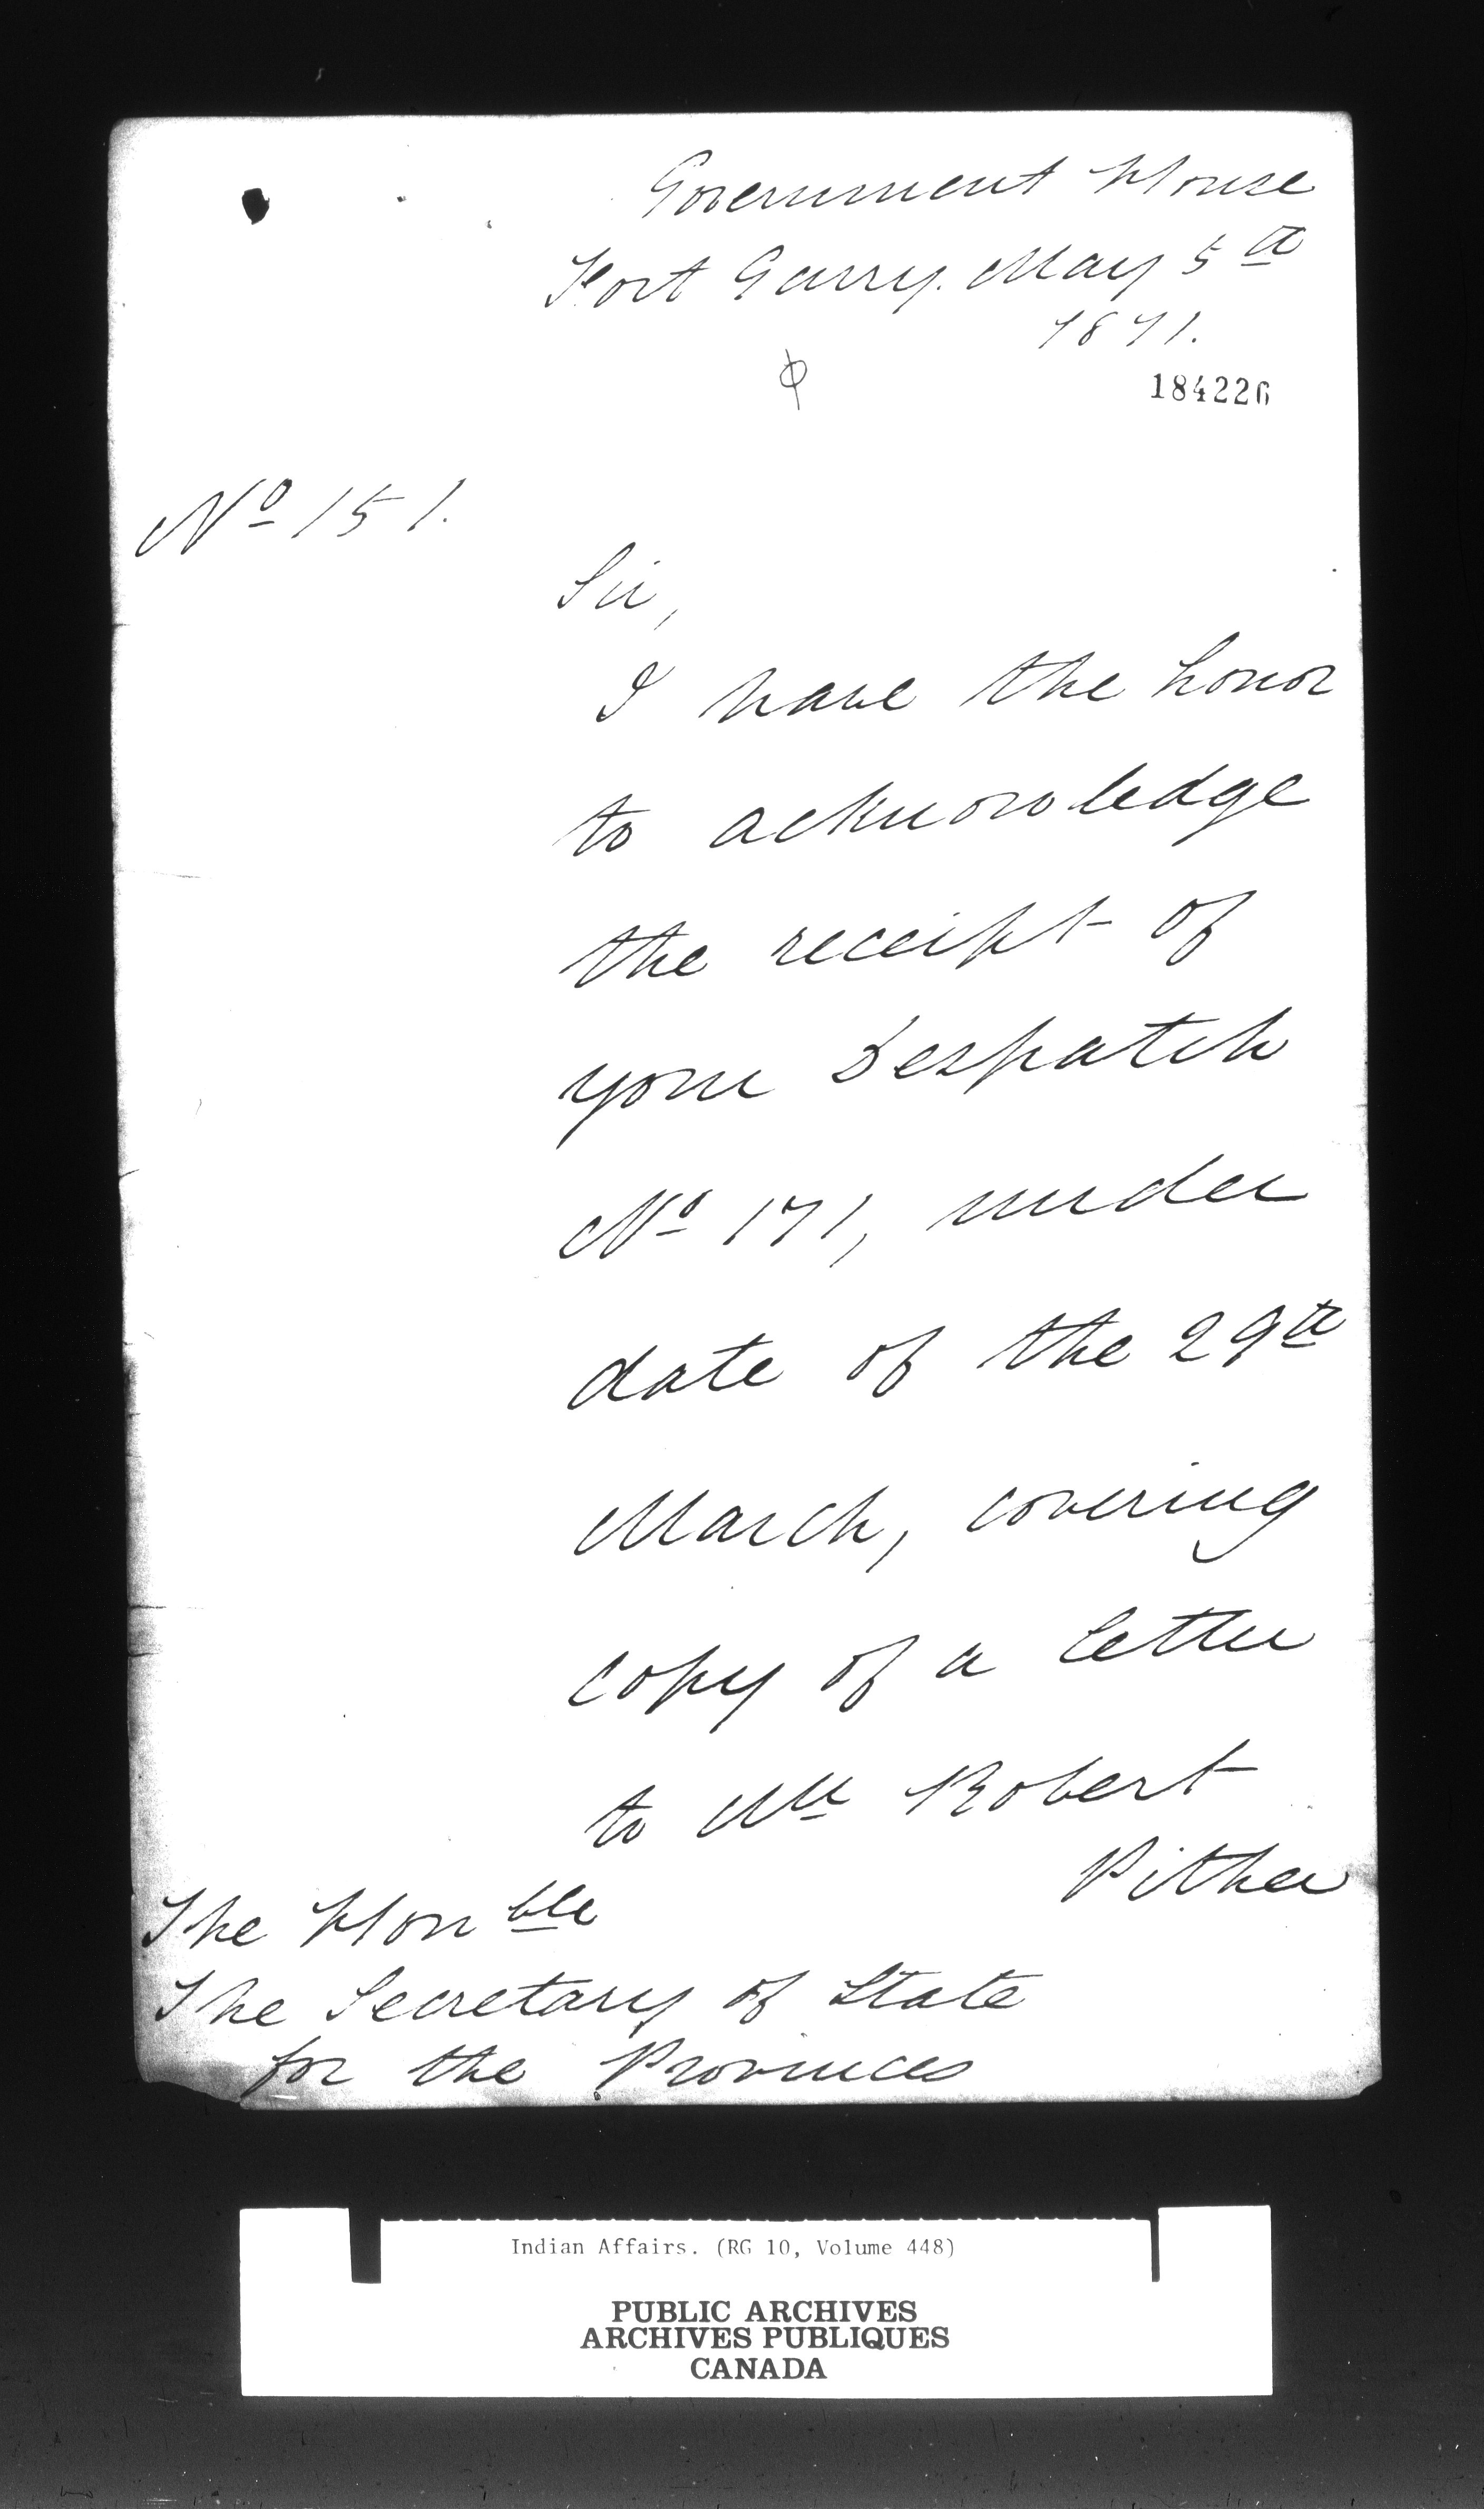 Government House
Fort Garry. May 5th
1871.
184226
No 151.
Sir,
I have the honor
to acknowledge
the receipt of
your Despatch
No 171, under
date of the 29th
March, covering
copy of a letter
to Mr Robert
Pither
The Honble
The Secretary of State
for the Provinces
Indian Affairs. (RG 10, Volume 448)
PUBLIC ARCHIVES
ARCHIVES PUBLIQUES
CANADA